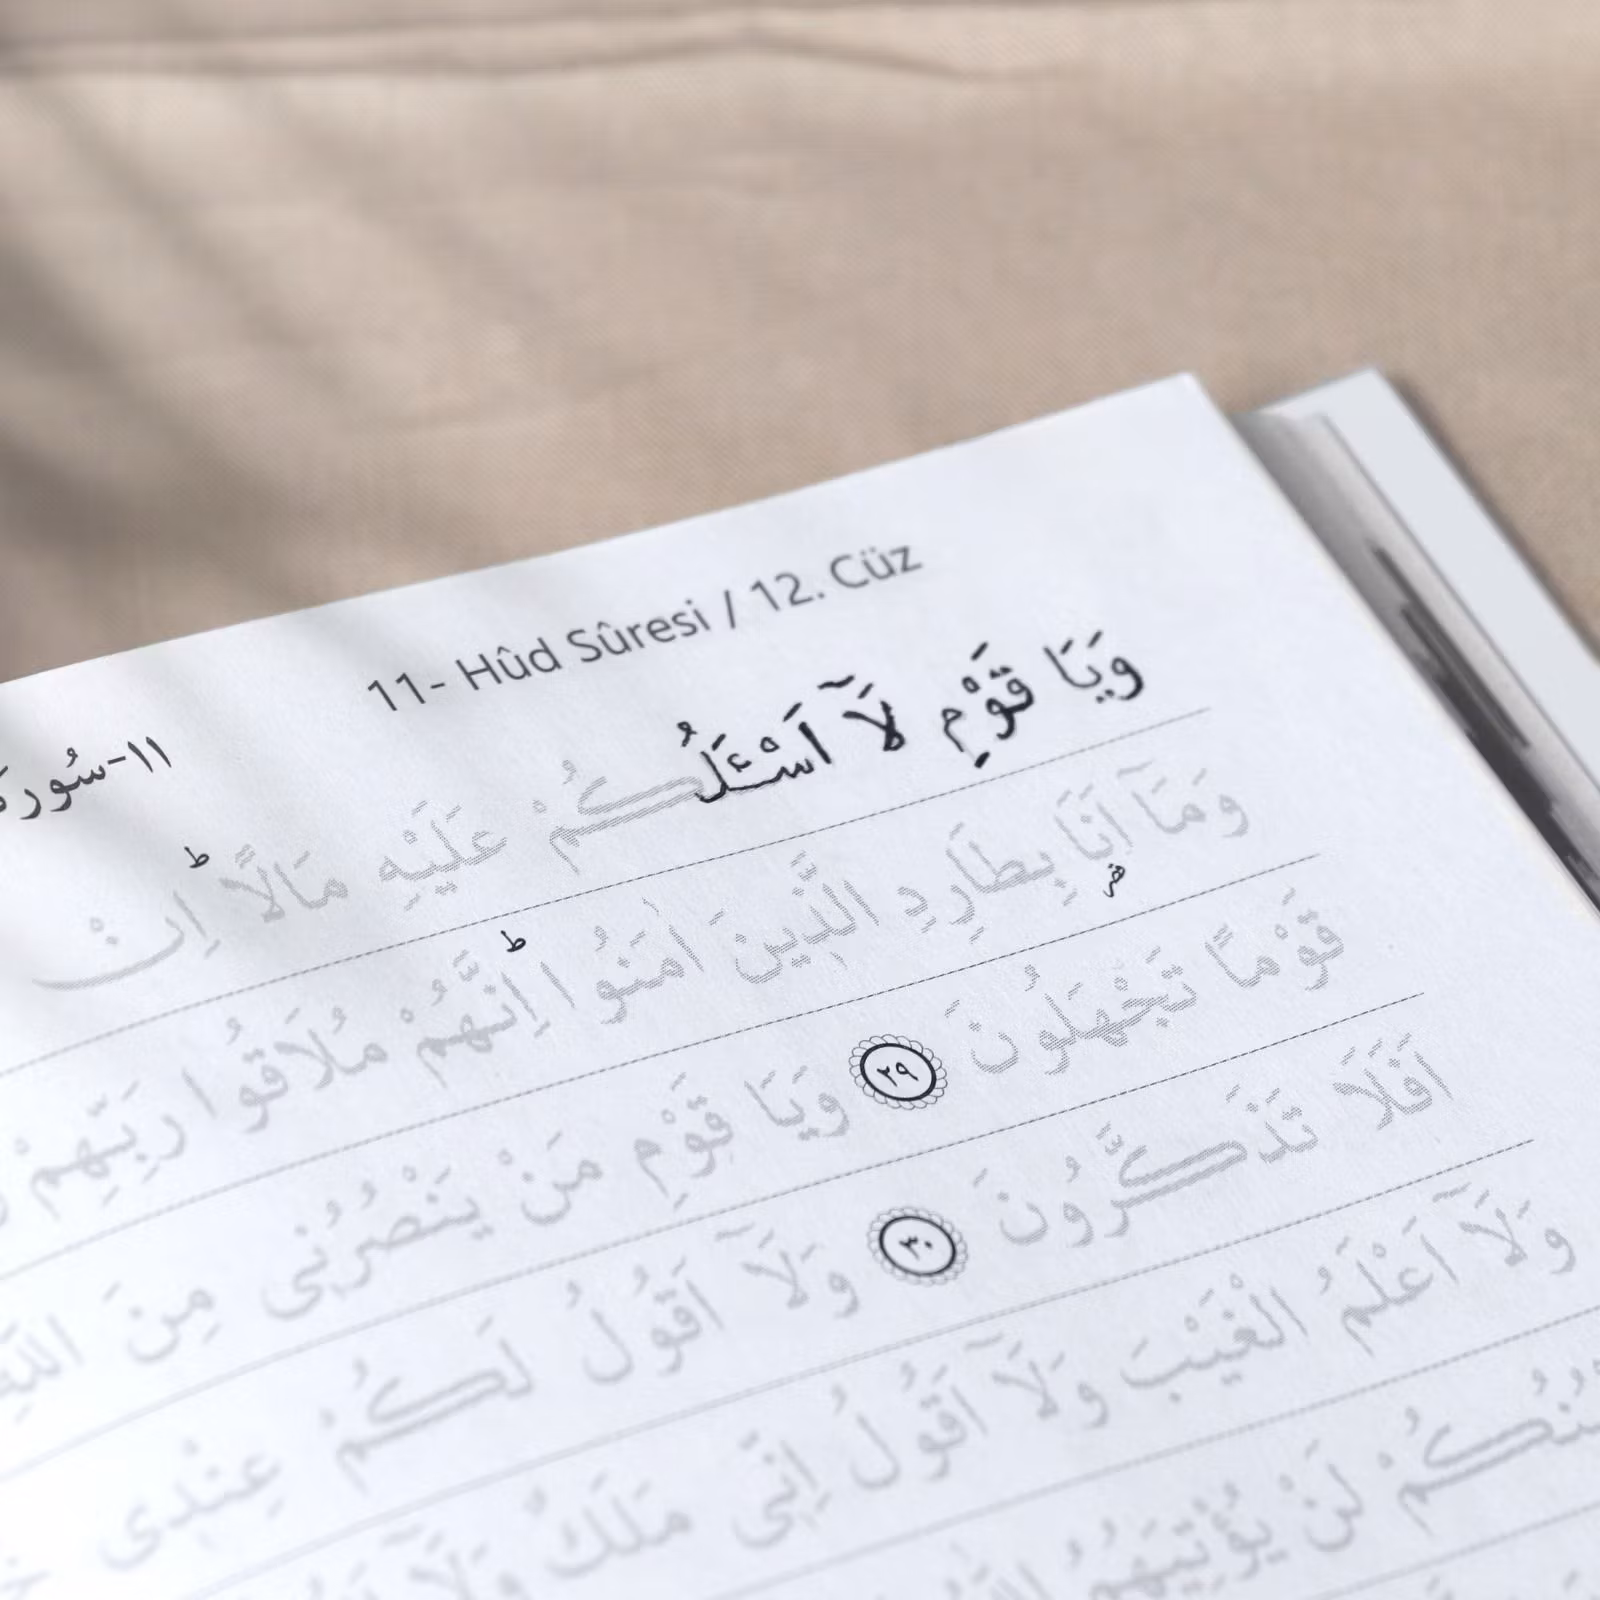 11- Hûd Sûresi / 12. Cüz
١١-سُورَة
وَيَا قَوْمِ لَٓا اَسْـَٔلُكُمْ عَلَيْهِ مَالًاؕ اِنْ
وَمَٓا اَنَا۬ بِطَارِدِ الَّذ۪ينَ اٰمَنُواؕ اِنَّهُمْ مُلَاقُوا رَبِّهِمْ
قَوْمًا تَجْهَلُونَ ﴿٢٩﴾ وَيَا قَوْمِ مَنْ يَنْصُرُن۪ى مِنَ اللّٰهِ
اَفَلَا تَذَكَّرُونَ ﴿٣٠﴾ وَلَٓا اَقُولُ لَكُمْ عِنْد۪ى
وَلَٓا اَعْلَمُ الْغَيْبَ وَلَٓا اَقُولُ اِنّ۪ى مَلَكٌ وَلَٓا
لَنْ يُؤْتِيَهُمُ